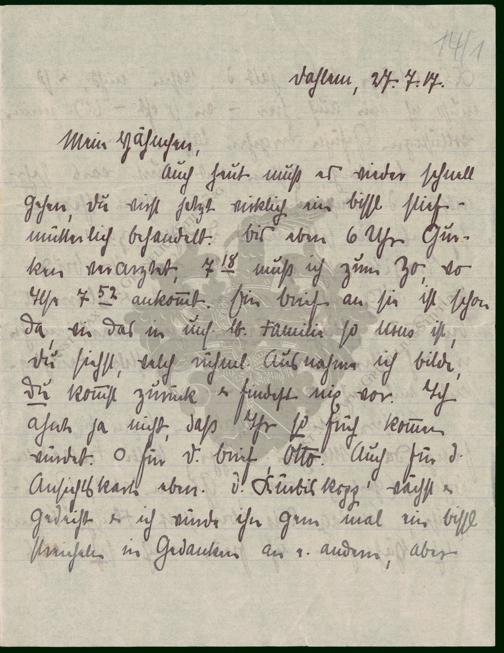 14/1
Dahlem, 27. 7. 17.
Mein Hähnchen,
Auch heut muß es wieder schnell
gehen, du wirst jetzt wirklich ein bissl stief-
mütterlich behandelt. bis eben 6 Uhr Gur-
ken verarztet, 7 18 muß ich zum Zo, wo
Ihr 7 52 ankommt. Ein brief an sie ist schon
da, wie das in uns. lb. Familie so usus ist,
du siehst, welch rühml. Ausnahme ich bilde,
du kommst zurück & findest nix vor. Ich
ahnte ja nicht, daß Ihr so früh kommen
würdet. O für d. brief Otto. Auch für d.
Ansichtskarte eben. d. Kürbiskopp wächst &
gedeiht & ich würde ihn gern mal ein bissl
streicheln in Gedanken an e. andern, aber